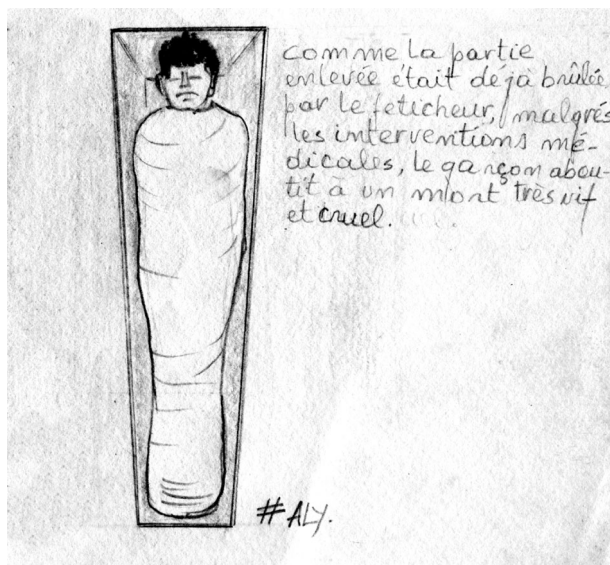 comme la partie
enlevée était déjà brûlée,
par le feticheur, malgrés
les interventions mé-
dicales, le garçon abou-
tit à un mort très vif
et cruel.
#ALY.